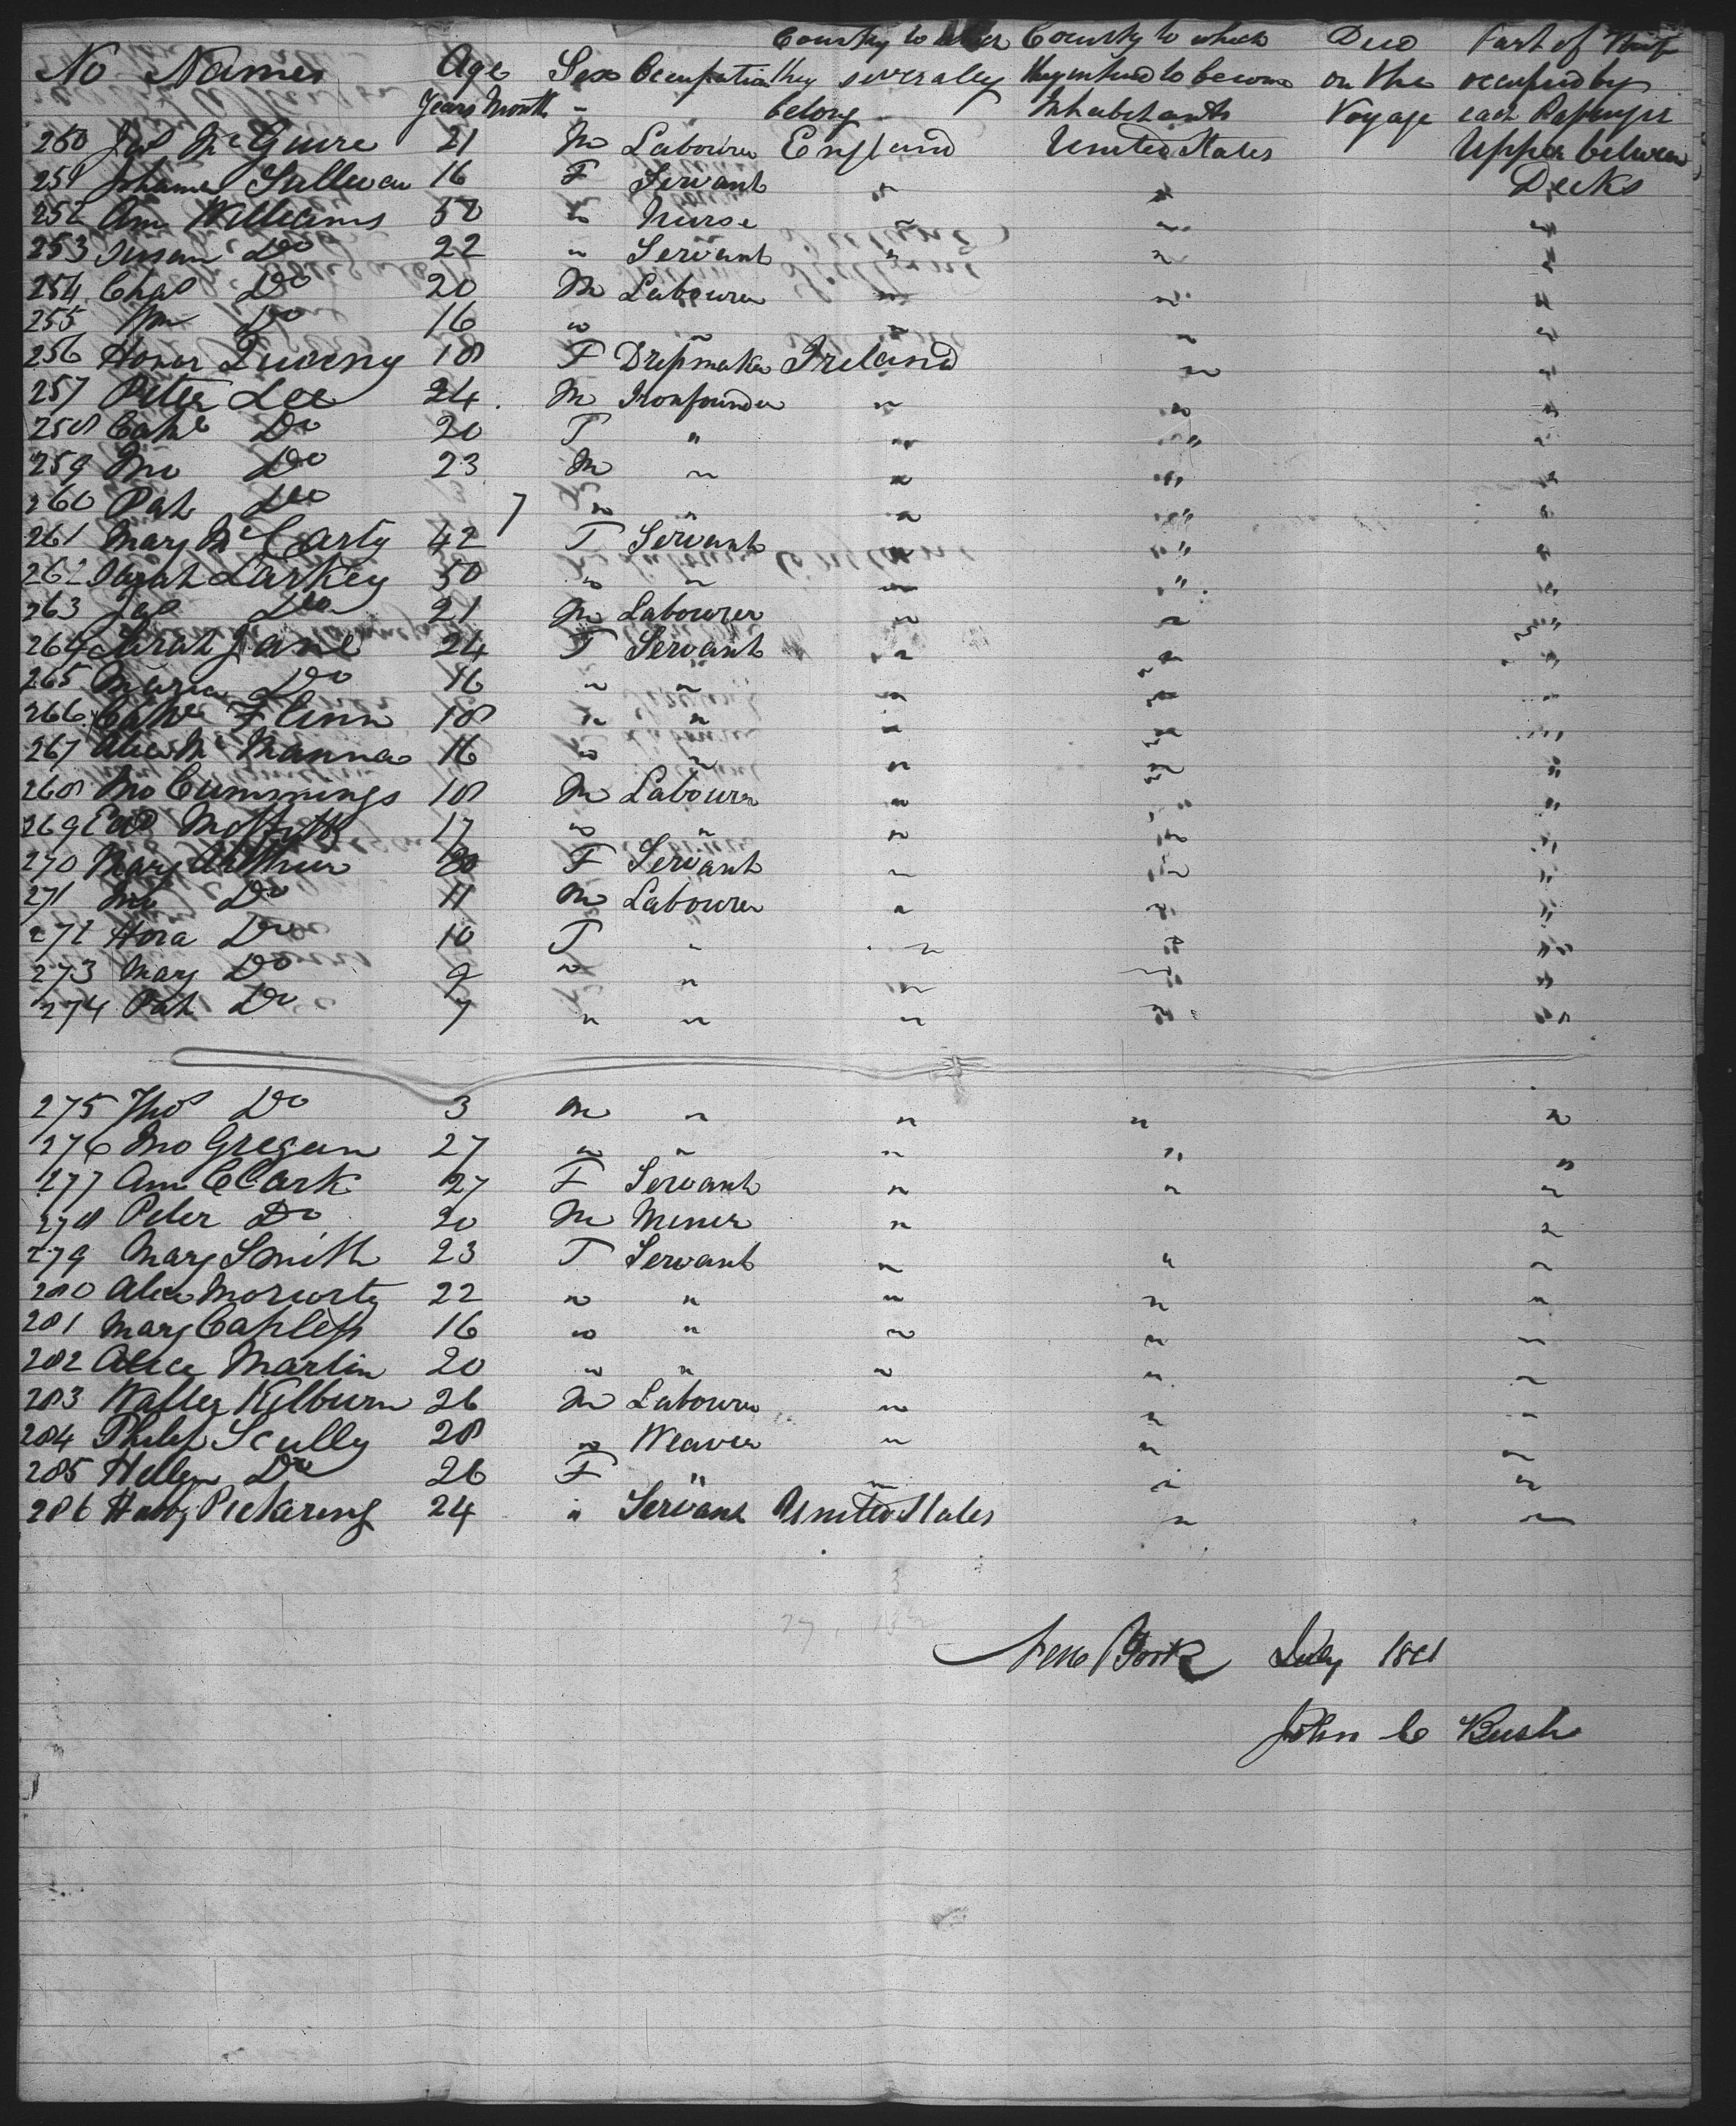 No Names Age Sex Occupation Country to which they severally belong Country to which they intend to become Inhabitants Died on the Voyage Part of Ship occupied by each Passenger
Years Month "
250 Jas McGuire 21 M Labourer England United States Upper between Decks
251 Johanna Sullivan 16 F Servant " " "
252 Ann Williams 50 " Nurse " " "
253 Susan Do 22 " Servant " " "
254 Chas Do 20 M Labourer " " "
255 Wm Do 16 " " " " "
256 Honor Queeny 18 F Dressmaker Ireland " "
257 Peter Lee 24 M Ironfounder " " "
258 Cathe Do 20 F " " " "
259 Jno Do 23 M " " " "
260 Pat Do 7 " " " " "
261 Mary McCarty 42 F Servant " " "
262 Larkey 50 " " " " "
263 Jas Do 21 M Labourer " " "
264 Sarah Jane 24 F Servant " " "
265 Maria Do 16 " " " " "
266 Cathe Flinn 18 " " " " "
267 Alice McManna 16 " " " " "
268 Jno Cummings 18 M Labourer " " "
269 Edd 17 " " " " "
270 Mary Arthur F Servant " " "
271 Jno Do 11 M Labourer " " "
272 Hora Do 10 F " " " "
273 Mary Do 9 " " " " "
274 Pat Do 7 " " " " "
275 Thos Do 3 M " " " "
276 Jno Gregan 27 " " " " "
277 Ann Clark 27 F Servant " " "
278 Peter Do 20 M Miner " "
279 Mary Smith 23 F Servant " " "
280 Alice Moriarty 22 " " " " "
281 Mary Capless 16 " " " " "
282 Alice Martin 20 " " " " "
283 Walter Kilburn 26 M Labourer " " "
284 Philip Scully 28 " Weaver " " "
285 Hellen Do 26 F " " " "
286 Pickering 24 " Servant United States " "
New York July 1861
John C Bush